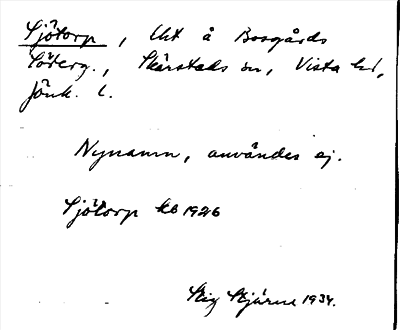 Sjötorp, Uht å Bosgårds
Söderg., Skärstads sn, Vista hd,
Jönk. l.
Nynamn, användes ej.
Sjötorp kb 1926
Stig Stjärne 1934.